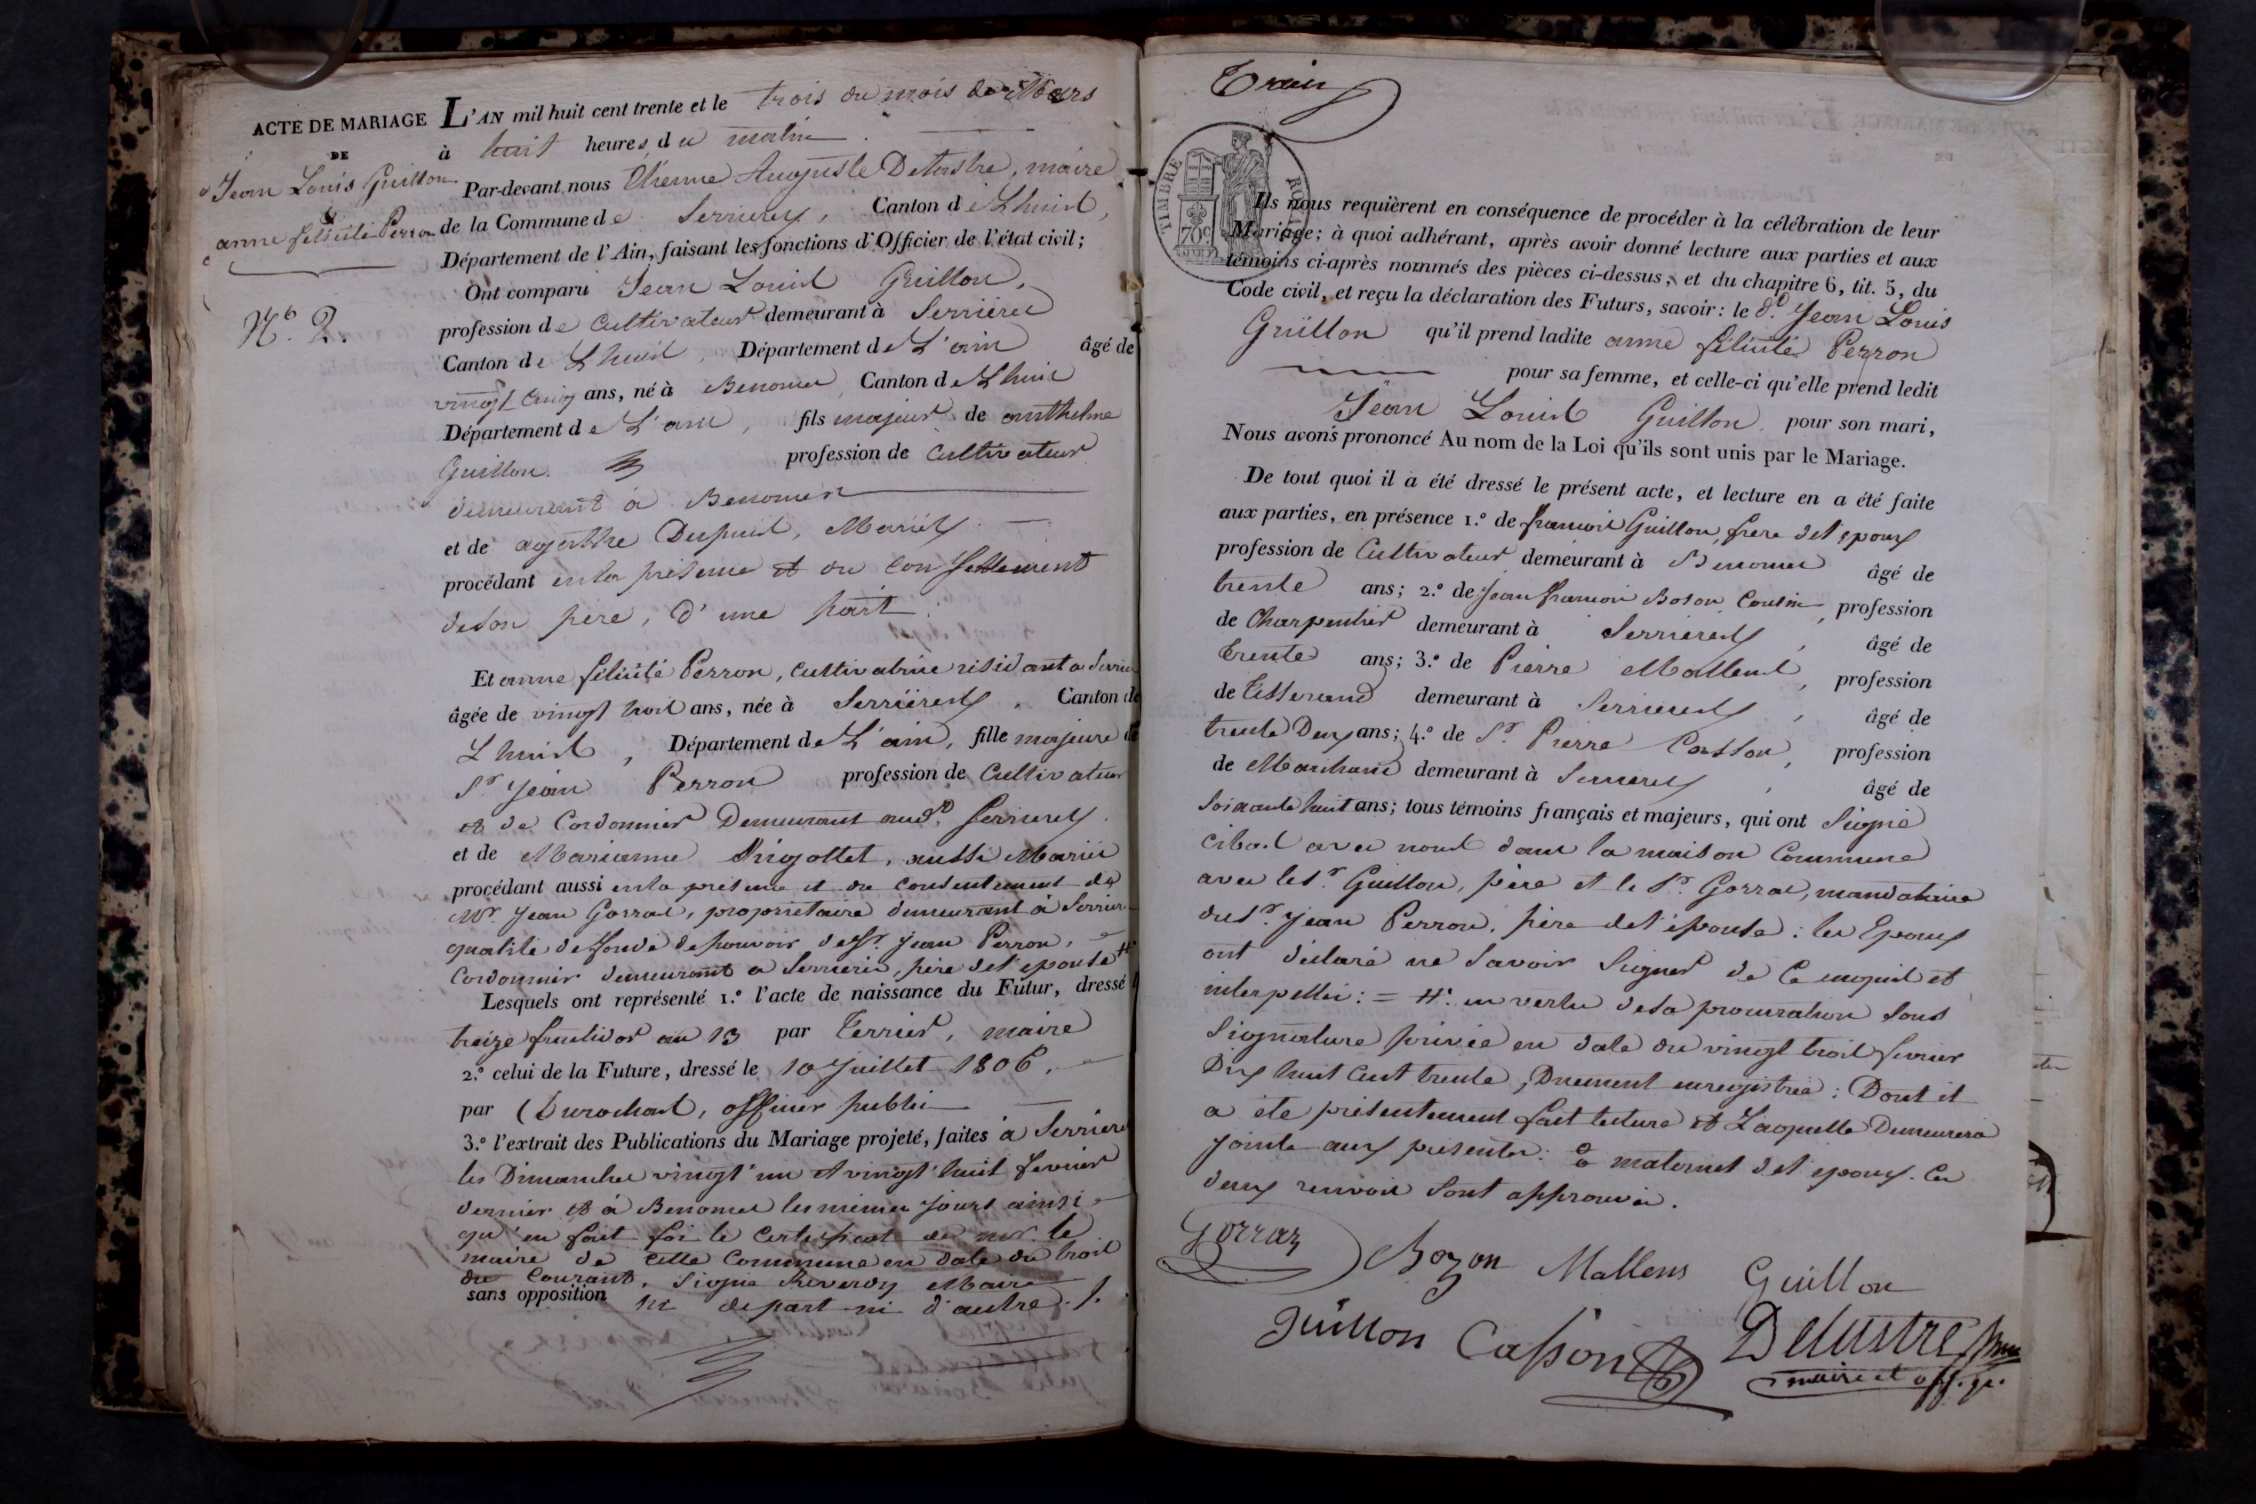 ACTE DE MARIAGE
DE
Jean Louis Guillon
&
anne félicité Perron
N.º 2.
L'AN mil huit cent trente et le trois du mois de Mars
à huit heures du matin
Par-devant nous Etienne Auguste Delastre, maire
de la Commune de Serrieres, Canton de Lhuis,
Département de l'Ain, faisant les fonctions d'Officier de l'état civil;
Ont comparu Jean Louis Guillon,
profession de Cultivateur demeurant à Serrieres
Canton de Lhuis, Département de L'ain âgé de
vingt cinq ans, né à Benonces Canton de Lhuis
Département de L'ain, fils majeur de anthelme
Guillon profession de Cultivateur
demeurant à Benonces
et de agathe Dupuis, Mariés
procédant en la présence et du consentement
de son père, d'une part
Et anne félicité Perron, cultivatrice résidant a Serrieres
âgée de vingt trois ans, née à Serrieres, Canton de
Lhuis, Département de L'ain, fille majeure de
Sr Jean Perron profession de Cultivateur
et de Cordonnier Demeurant aud. Serrieres
et de Marianne, aussi Mariés
procédant aussi en la présence et du consentement de
Mr. Jean Gorraz, propriétaire demeurant à Serrieres
qualité de fondé de pouvoir de Sr. Jean Perron,
Cordonnier demeurant a Serrieres, père de l'épouse #
Lesquels ont représenté 1.º l'acte de naissance du Futur, dressé le
treize fructidor an 13 par Terrier, maire
2.º celui de la Future, dressé le 10 Juillet 1806,
par Durochat, officier public
3.º l'extrait des Publications du Mariage projeté, faites à Serrieres
les Dimanches vingt un et vingt huit fevrier
dernier et à Benonces les mêmes jours ainsi
qu'en fait foi le Certificat de mr. le
maire de cette Commune en date du trois
du Courant, Signé Reverdy Maire
sans opposition ni de part ni d'autre./.
Train
TIMBRE ROYAL
70c
Ils nous requièrent en conséquence de procéder à la célébration de leur
Mariage; à quoi adhérant, après avoir donné lecture aux parties et aux
témoins ci-après nommés des pièces ci-dessus, et du chapitre 6, tit. 5, du
Code civil, et reçu la déclaration des Futurs, savoir: le d. Jean Louis
Guillon qu'il prend ladite anne félicité Perron
pour sa femme, et celle-ci qu'elle prend ledit
Jean Louis Guillon pour son mari,
Nous avons prononcé Au nom de la Loi qu'ils sont unis par le Mariage.
De tout quoi il a été dressé le présent acte, et lecture en a été faite
aux parties, en présence 1.º de francois Guillon, frere de l'epoux
profession de Cultivateur demeurant à Benonces âgé de
trente ans; 2.º de Jean francois Boson Cousin, profession
de Charpentier demeurant à Serrieres, âgé de
trente ans; 3.º de Pierre Mallens, profession
de Tisserand demeurant à Serrieres, âgé de
trente Deux ans; 4.º de Sr. Pierre Casson, profession
de Marchand demeurant à Serrieres, âgé de
soixante huit ans; tous témoins français et majeurs, qui ont Signé
ci bas avec nous dans la maison Commune
avec le Sr. Guillon, père et le Sr. Gorraz, mandataire
du Sr. Jean Perron, père de l'épouse: les Epoux
ont déclaré ne Savoir Signer de Ce enquis et
interpellés: = #. en vertu de sa procuration sous
Signature privée en date du vingt trois fevrier
Dix huit Cent trente, Duement enregistrée: Dont il
a été présentement fait lecture et Laquelle Demeurera
jointe aux présentes: maternel de l'epoux. Ces
deux renvois Sont approuvés.
Gorraz Bozon Mallens Guillon
Guillon Casson Delastre
maire et off. p.